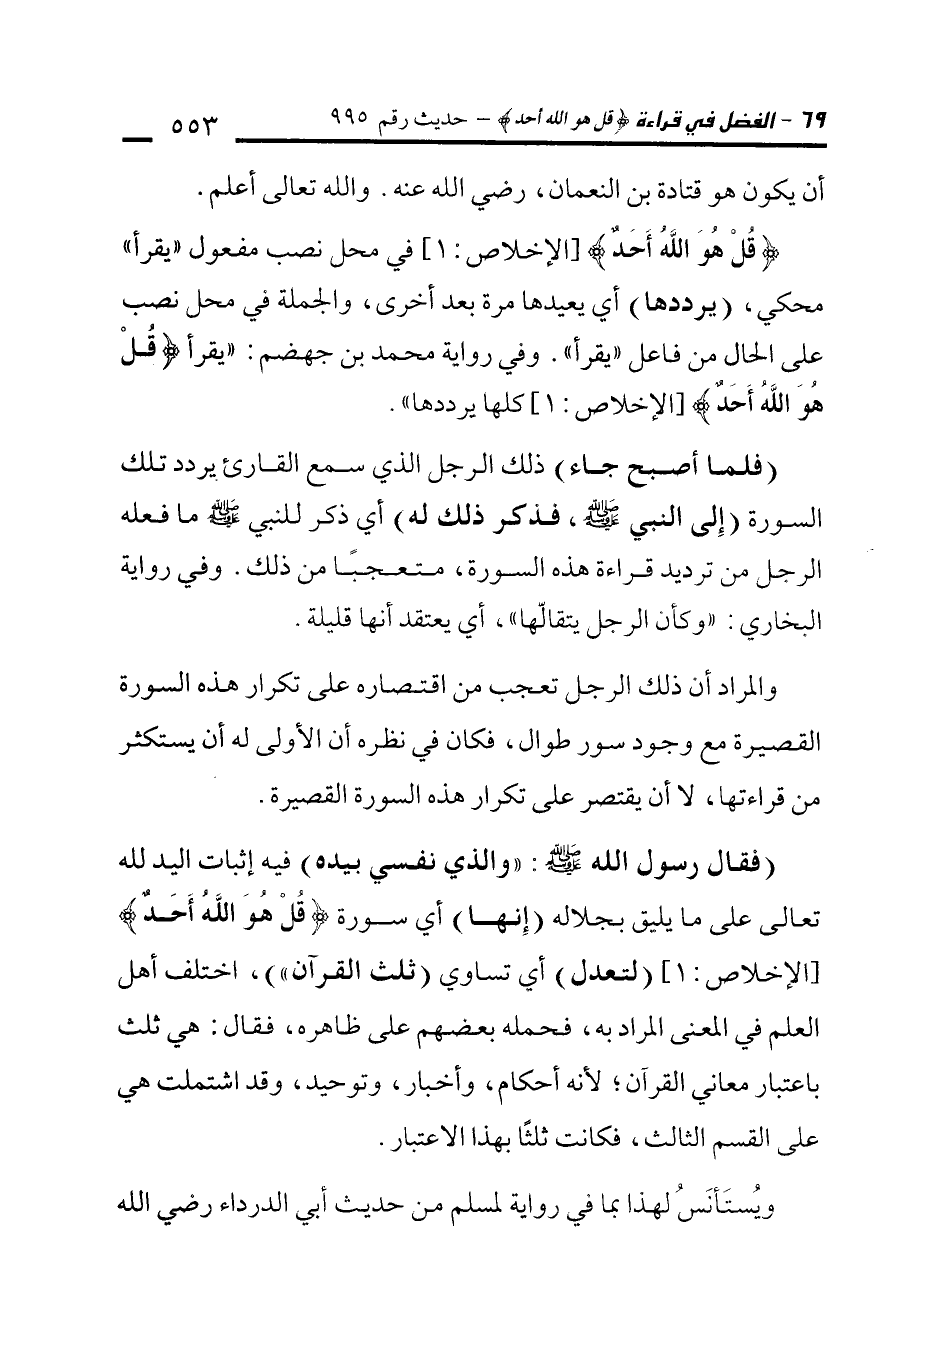 ٦٩ - الفضل في قراءة ﴿قل هو الله أحد﴾ - حديث رقم ٩٩٥ ٥٥٣
أن يكون هو قتادة بن النعمان، رضي الله عنه. والله تعالى أعلم.
﴿قُلْ هُوَ اللَّهُ أَحَدٌ﴾ [الإخلاص: ١] في محل نصب مفعول «يقرأ»
محكي، (يرددها) أي يعيدها مرة بعد أخرى، والجملة في محل نصب
على الحال من فاعل «يقرأ». وفي رواية محمد بن جهضم: «يقرأ ﴿قُـلْ
هُوَ اللَّهُ أَحَدٌ﴾ [الإخلاص: ١] كلها يرددها».
(فلمـا أصبـح جـاء) ذلك الرجل الذي سـمع القـارئ يردد تلك
السورة (إلى النبي ﷺ، فـذكـر ذلك له) أي ذكر للنبي ﷺ ما فعله
الرجل من ترديد قراءة هذه السـورة، متـعـجبًـا من ذلك. وفي رواية
البخاري: «وكأن الرجل يتقالّها»، أي يعتقد أنها قليلة.
والمراد أن ذلك الرجل تعجب من اقتصاره على تكرار هذه السورة
القصيرة مع وجود سور طوال، فكان في نظره أن الأولى له أن يستكثر
من قراءتها، لا أن يقتصر على تكرار هذه السورة القصيرة.
(فقال رسول الله ﷺ: «والذي نفسي بيده) فيه إثبات اليد لله
تعالى على ما يليق بجلاله (إنهـا) أي سـورة ﴿قُلْ هُوَ اللَّهُ أَحَـدٌ﴾
[الإخلاص: ١] (لتعدل) أي تساوي (ثلث القرآن»)، اختلف أهل
العلم في المعنى المراد به، فحمله بعضهم على ظاهره، فقال: هي ثلث
باعتبار معاني القرآن؛ لأنه أحكام، وأخبار، وتوحيد، وقد اشتملت هي
على القسم الثالث، فكانت ثلثًا بهذا الاعتبار.
ويُستَأنَسُ لهذا بما في رواية لمسلم من حديث أبي الدرداء رضي الله